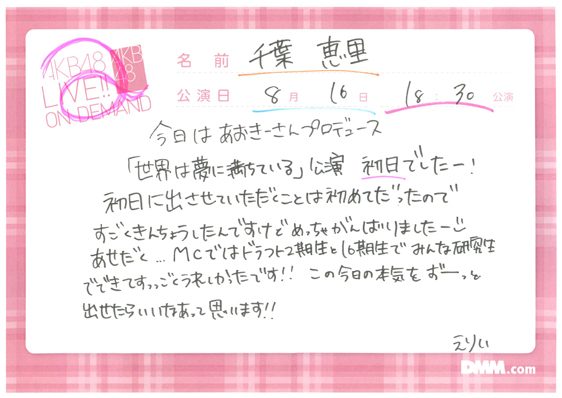 AKB48
LIVE!!
ON DEMAND
AKB
48
名前 千葉 恵里
公演日 8月 16日 18:30 公演
今日は あおきーさんプロデュース
「世界は夢に満ちている」公演 初日でしたー!
初日に出させていただくことは初めてだったので
すごくきんちょうしたんですけどめっちゃがんばりましたー
あせだく… MCではドラフト2期生と16期生でみんな研究生
でできてすっっごくうれしかったです!! この今日の本気をずーっと
出せたらいいなあって思います!!
えりい
DMM.com